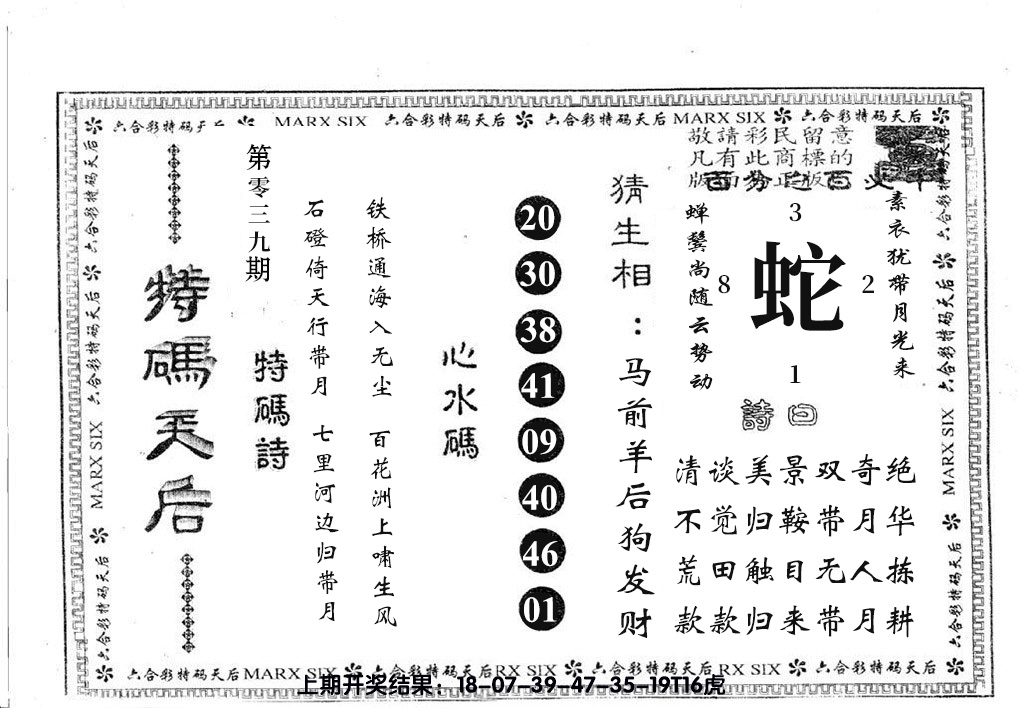 六合彩特码天后 MARX SIX 六合彩特码天后 六合彩特码天后 MARX SIX 六合彩特码天后
六合彩特码天后 六合彩特码天后 MARX SIX
特碼天后
第零三九期
特碼詩
石磴倚天行带月 七里河边归带月
铁桥通海入无尘 百花洲上啸生风
心水碼
20
30
38
41
09
40
46
01
猜生相：马前羊后狗发财
敬請彩民留意
凡有此商標的
正版
百分之百
蝉鬓尚随云势动
3
8
蛇
2
1
素衣犹带月光来
詩曰
清谈美景双奇绝
不觉归鞍带月华
荒田触目无人拣
款款归来带月耕
六合彩特码天后 六合彩特码天后 MARX SIX 六合彩特码天后
六合彩特码天后 MARX SIX 六合彩特码天后 RX SIX 六合彩特码天后 RX SIX 六合彩特码天后
上期开奖结果：18-07-39-47-35-19T16虎